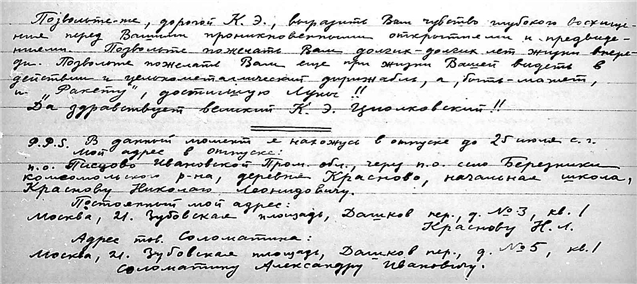 Позвольте-же, дорогой К. Э., выразить Вам чувство глубокого восхище-
ния перед Вашими проникновенными открытиями и предвиде-
ниями. Позвольте пожелать Вам долгих-долгих лет жизни впере-
ди. Позвольте пожелать Вам еще при жизни Вашей видеть в
действии и цельнометаллический дирижабль, а, быть-может,
и "Ракету", достигшую Луны!!
Да здравствует великий К. Э. Циолковский!!
P.P.S. В данный момент я нахожусь в отпуске до 25 июля с. г.
Мой адрес в отпуске:
п.о. Писцово Ивановской Пром. обл., через п.о. село Березники
Комсомольского р-на, деревня Красново, начальная школа,
Краснову Николаю Леонидовичу.
Постоянный мой адрес:
Москва, 21. Зубовская площадь, Дашков пер., д. №3, кв. 1
Краснову Н. Л.
Адрес тов. Соломатина:
Москва, 21. Зубовская площадь, Дашков пер., д. №5, кв. 1
Соломатину Александру Ивановичу.